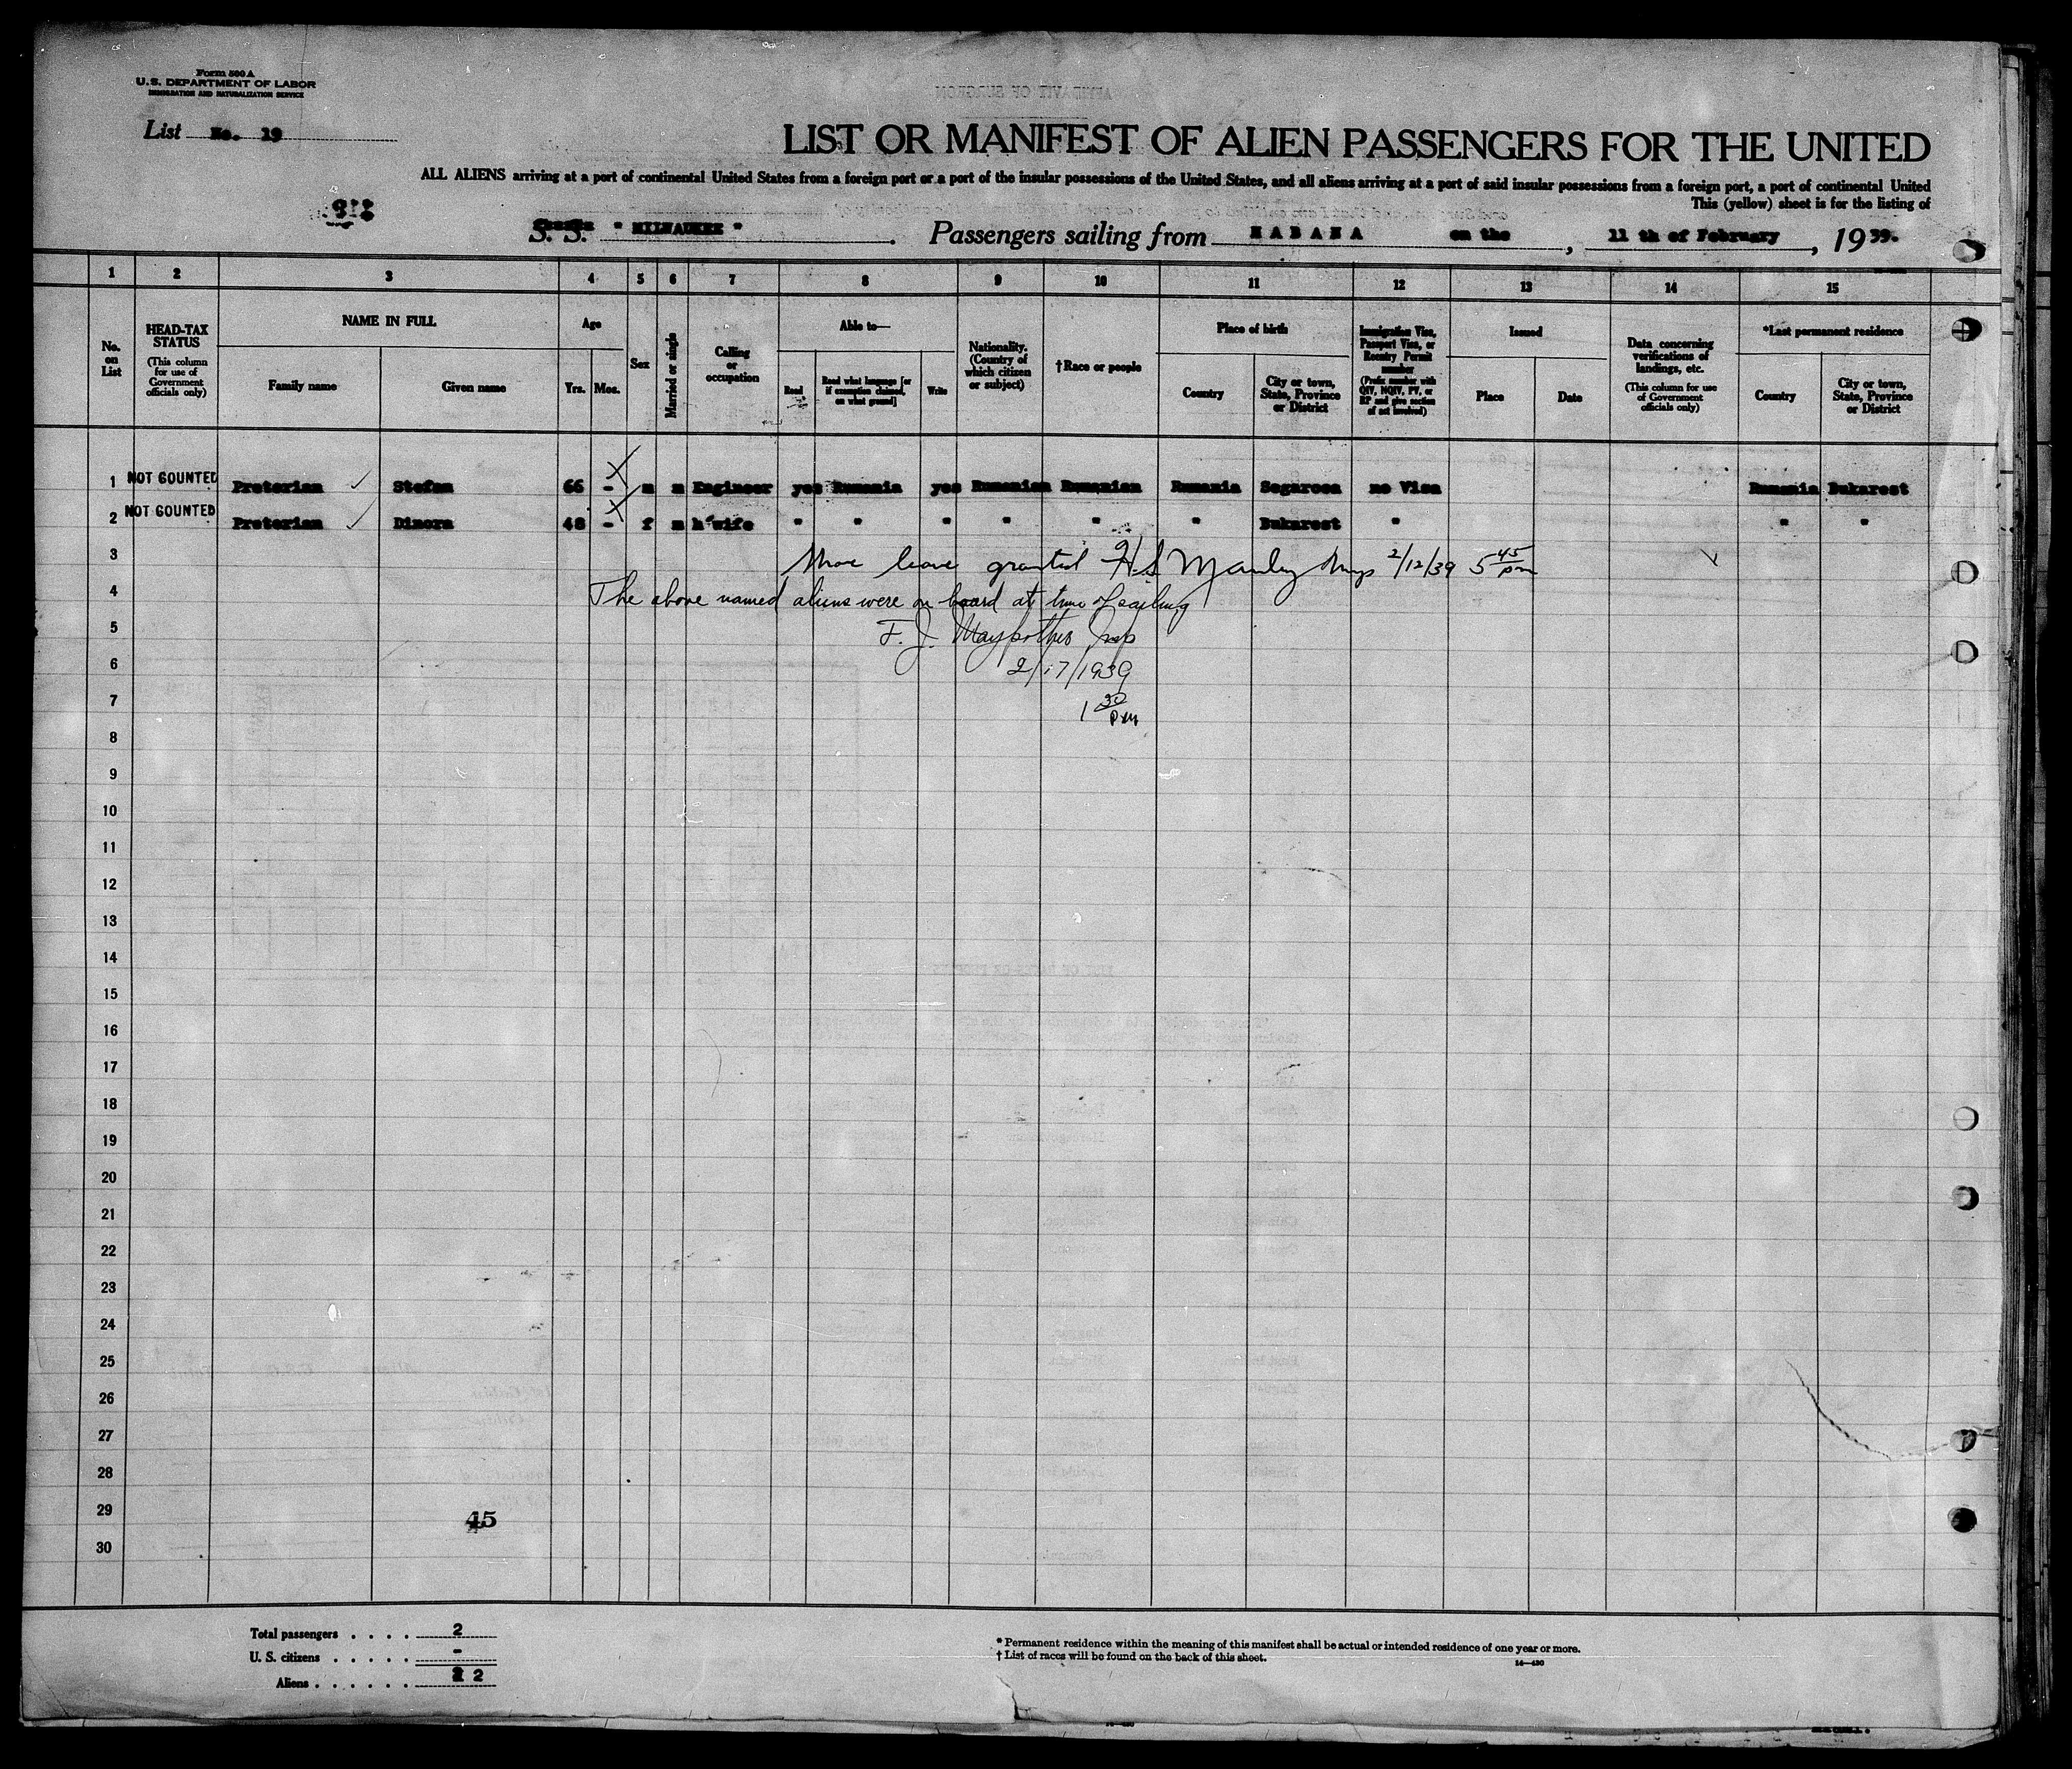 Form 500 A
U.S. DEPARTMENT OF LABOR
IMMIGRATION AND NATURALIZATION SERVICE
List No. 19
LIST OR MANIFEST OF ALIEN PASSENGERS FOR THE UNITED
ALL ALIENS arriving at a port of continental United States from a foreign port or a port of the insular possessions of the United States, and all aliens arriving at a port of said insular possessions from a foreign port, a port of continental United
This (yellow) sheet is for the listing of
S. S. " MILWAUKEE " . Passengers sailing from HABANA on the , 11 th of February , 19 39.
1 2 3 4 5 6 7 8 9 10 11 12 13 14 15
No. on List
HEAD-TAX STATUS (This column for use of Government officials only)
NAME IN FULL
Family name Given name
Age
Yrs. Mos.
Sex
Married or single
Calling or occupation
Able to—
Read Read what language [or if exemption claimed, on what ground] Write
Nationality. (Country of which citizen or subject)
†Race or people
Place of birth
Country City or town, State, Province or District
Immigration Visa, Passport Visa, or Reentry Permit number (Prefix number with QIV, NQIV, PV, or RP and give section of act involved)
Issued
Place Date
Data concerning verifications of landings, etc. (This column for use of Government officials only)
*Last permanent residence
Country City or town, State, Province or District
1 NOT COUNTED Pretorian Stefan 66 - m m Engineer yes Rumania yes Rumanian Rumanian Rumania Segarcea no Visa Rumania Bukarest
2 NOT COUNTED Pretorian Dinora 48 - f m h'wife " " " " " " Bukarest " " "
3 Shore leave granted H.S. Manley Insp 2/12/39 5 45 pm
4 The above named aliens were on board at time of sailing
5 F. J. Insp
6 2/17/1939
7 1 30 pm
8
9
10
11
12
13
14
15
16
17
18
19
20
21
22
23
24
25
26
27
28
29 45
30
Total passengers . . . . 2
U. S. citizens . . . . . -
Aliens . . . . . . 2
* Permanent residence within the meaning of this manifest shall be actual or intended residence of one year or more.
† List of races will be found on the back of this sheet.
14—430